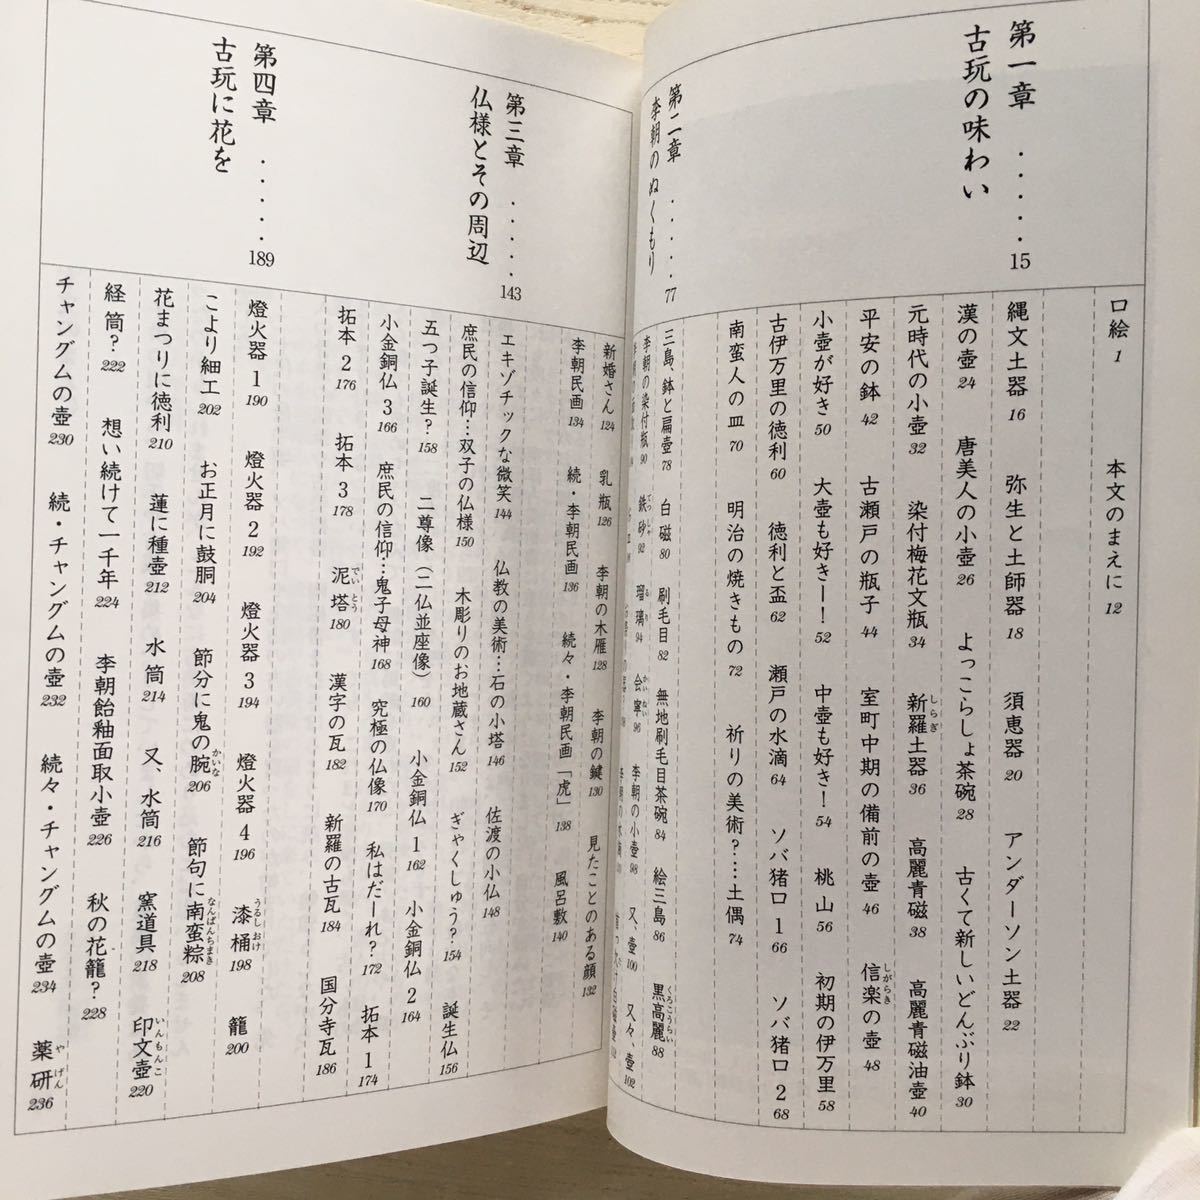 口絵 1 本文のまえに 12
第一章 ・・・・・・15
古玩の味わい
縄文土器 16 弥生と土師器 18 須恵器 20 アンダーソン土器 22
漢の壺 24 唐美人の小壺 26 よっこらしょ茶碗 28 古くて新しいどんぶり鉢 30
元時代の小壺 32 染付梅花文瓶 34 新羅土器 36 高麗青磁 38 高麗青磁油壺 40
平安の鉢 42 古瀬戸の瓶子 44 室町中期の備前の壺 46 信楽の壺 48
小壺が好き 50 大壺も好きー! 52 中壺も好き! 54 桃山 56 初期の伊万里 58
古伊万里の徳利 60 徳利と盃 62 瀬戸の水滴 64 ソバ猪口 1 66 ソバ猪口 2 68
南蛮人の皿 70 明治の焼きもの 72 祈りの美術?…土偶 74
第二章 ・・・・・・77
李朝のぬくもり
三島、鉢と扁壺 78 白磁 80 刷毛目 82 無地刷毛目茶碗 84 絵三島 86 黒高麗 88
李朝の染付瓶 90 鉄砂 92 瑠璃 94 会寧 96 李朝の小壺 98 又、壺 100 又々、壺 102
新婚さん 124 乳瓶 126 李朝の木雁 128 李朝の鍵 130 見たことのある顔 132
李朝民画 134 続・李朝民画 136 続々・李朝民画「虎」 138 風呂敷 140
第三章 ・・・・・・143
仏様とその周辺
エキゾチックな微笑 144 仏教の美術…石の小塔 146 佐渡の小仏 148
庶民の信仰…双子の仏様 150 木彫りのお地蔵さん 152 ぎゃくしゅう? 154 誕生仏 156
五つ子誕生? 158 二尊像(二仏並座像) 160 小金銅仏 1 162 小金銅仏 2 164
小金銅仏 3 166 庶民の信仰…鬼子母神 168 究極の仏像 170 私はだーれ? 172 拓本 1 174
拓本 2 176 拓本 3 178 泥塔 180 漢字の瓦 182 新羅の古瓦 184 国分寺瓦 186
第四章 ・・・・・・189
古玩に花を
燈火器 1 190 燈火器 2 192 燈火器 3 194 燈火器 4 196 漆桶 198 籠 200
こより細工 202 お正月に鼓胴 204 節分に鬼の腕 206 節句に南蛮粽 208
花まつりに徳利 210 蓮に種壺 212 水筒 214 又、水筒 216 窯道具 218 印文壺 220
経筒? 222 想い続けて一千年 224 李朝飴釉面取小壺 226 秋の花籠? 228
チャングムの壺 230 続・チャングムの壺 232 続々・チャングムの壺 234 薬研 236